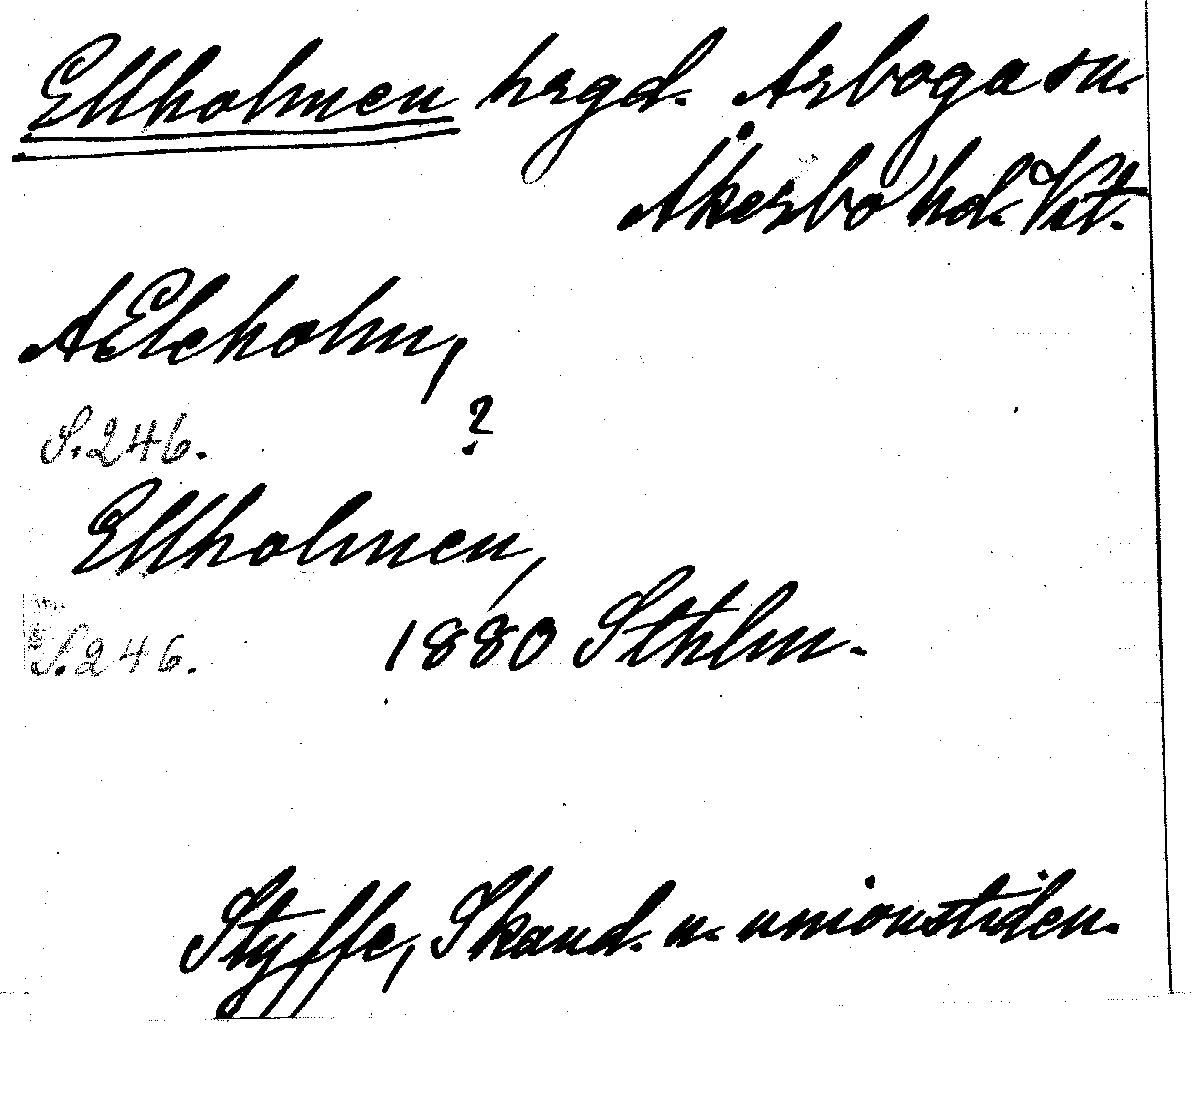 Ellholmen hrgd. Arboga sn.
Åkerbo hd. Vst.
AEleholm,
S. 246. ?
Ellholmen,
S. 246. 1880 Sthlm.
Styffe, Skand. u. unionstiden.